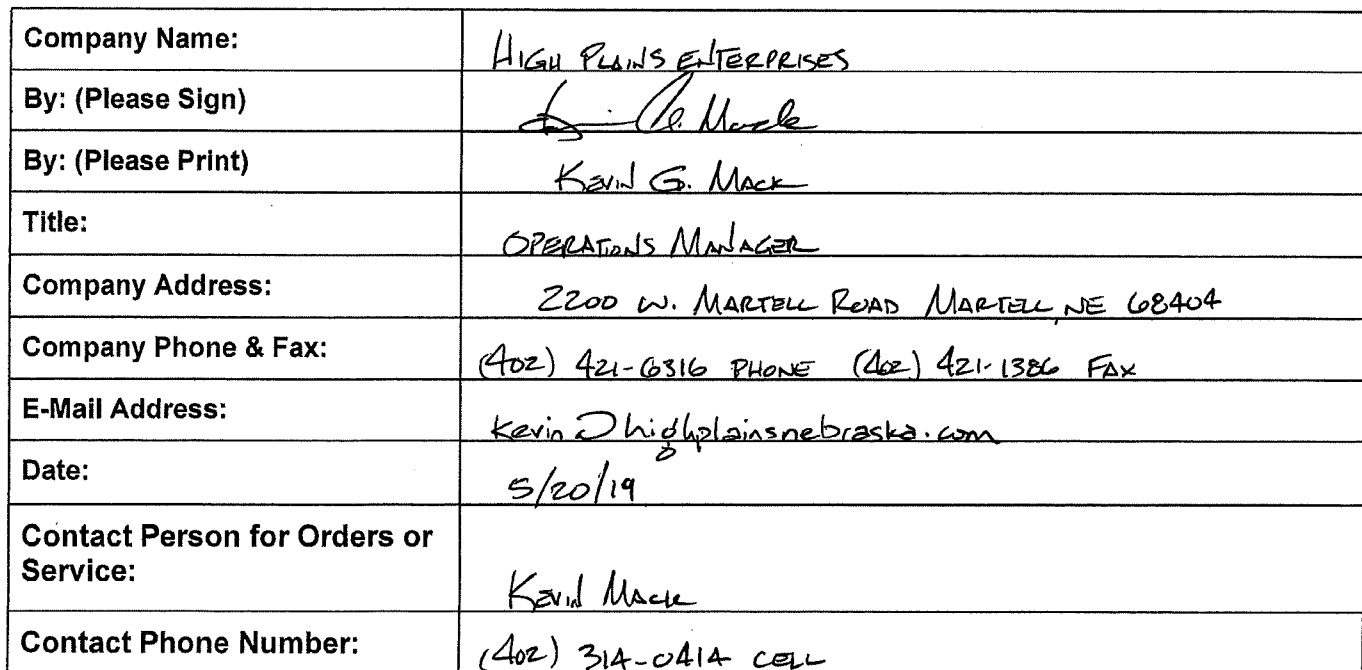 Company Name: HIGH PLAINS ENTERPRISES
By: (Please Sign) Kevin G. Mack
By: (Please Print) KEVIN G. MACK
Title: OPERATIONS MANAGER
Company Address: 2200 W. MARTELL ROAD MARTELL, NE 68404
Company Phone & Fax: (402) 421-6316 PHONE (402) 421-1386 FAX
E-Mail Address: kevin@highplainsnebraska.com
Date: 5/20/19
Contact Person for Orders or
Service: KEVIN MACK
Contact Phone Number: (402) 314-0414 CELL